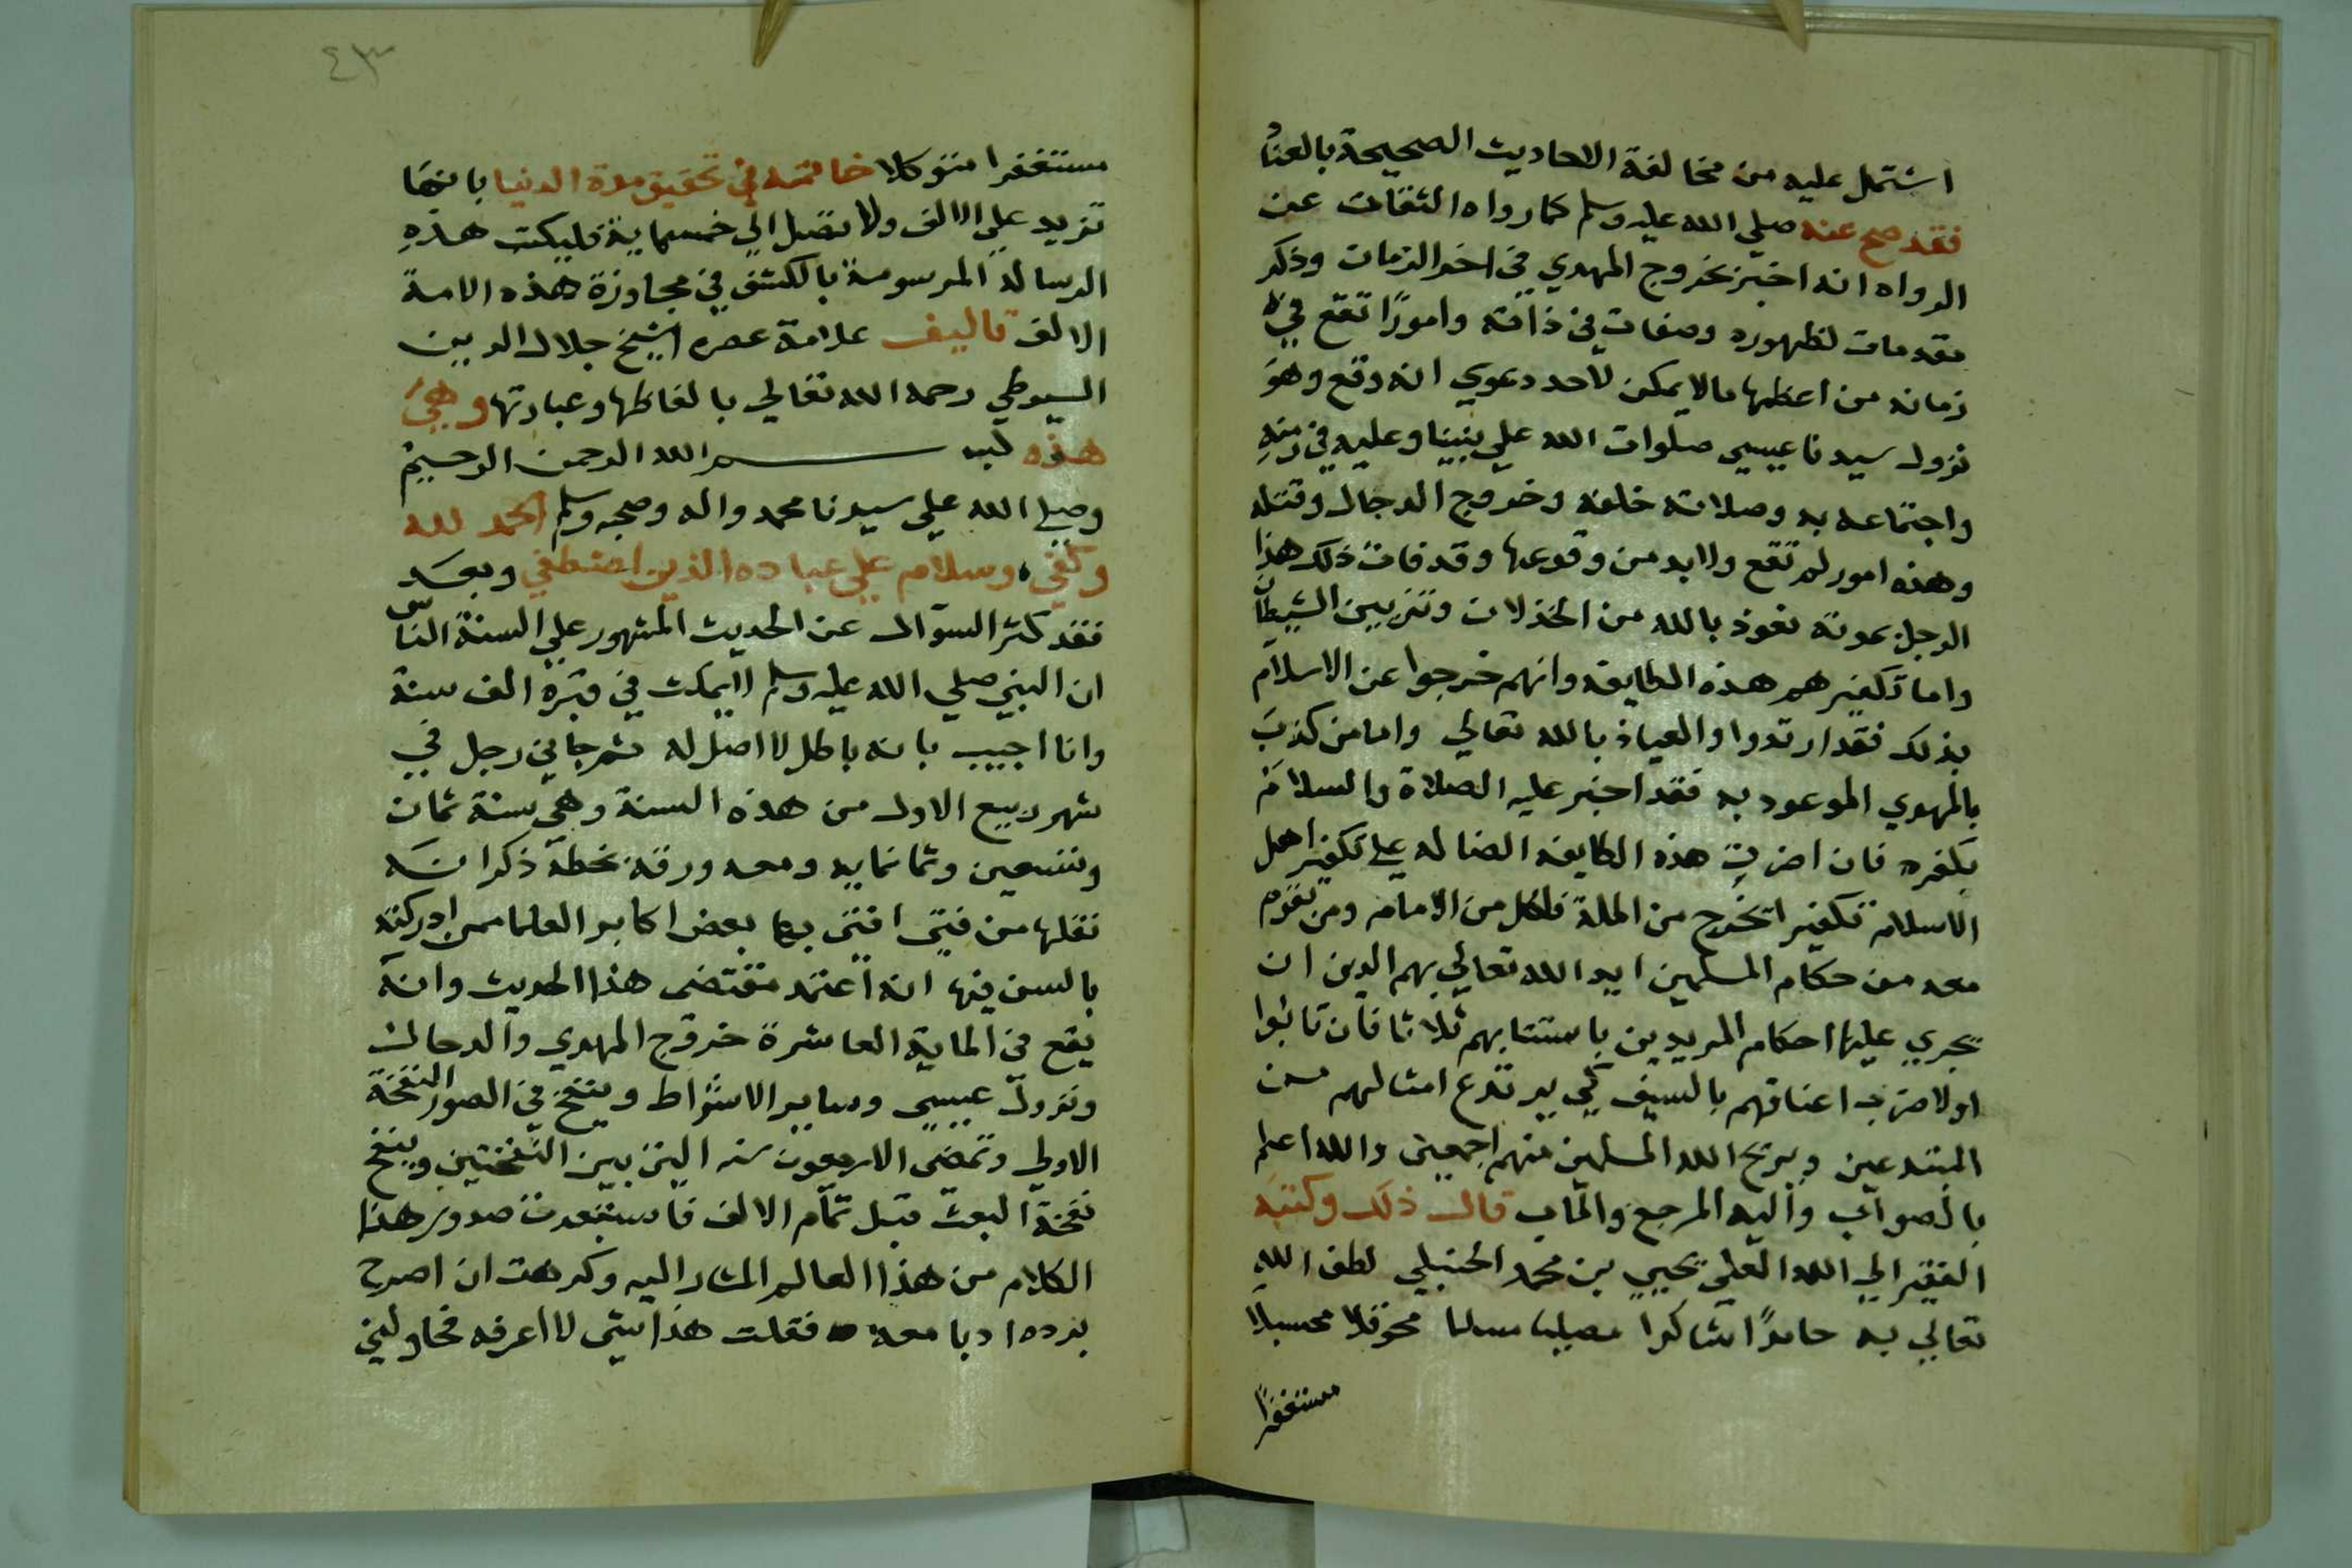 اشتمل عليه من مخالفة الاحاديث الصحيحة بالعناد
فقد صح عنه صلي الله عليه وسلم كما رواه الثقات عن
الرواه انه اخبر بخروج المهدي في اخر الزمان وذكر
مقدمات لظهوره وصفات في ذاته وامورًا تقع في
زمانه من اعظمها ما لا يمكن لاحد دعوي انه وقع وهو
نزول سيدنا عيسي صلوات الله علي نبينا وعليه في زمنه
واجتماعه به وصلاته خلفه وخروج الدجال وقتله
وهذه امور لم تقع ولابد من وقوعها وقد فات ذلك هذا
الرجل بموته نعوذ بالله من الخذلان وتزيين الشيطان
واما تكفيرهم هذه الطايفه وانهم خرجوا عن الاسلام
بذلك فقد ارتدوا والعياذ بالله تعالي واما من كذب
بالمهدي الموعود به فقد اخبر عليه الصلاة والسلام
بكفره فان اصرت هذه الطايفه الضاله علي تكفير اهل
الاسلام تكفيرا تخرج من الملة فلكل من الامام ومن تقوم
معه من حكام المسلمين ايد الله تعالي بهم الدين ان
يجري عليها احكام المريدين باستتابهم ثلاثا فان تابوا
اولا ضرب اعناقهم بالسيف كي يرتدع امثالهم من
المبتدعين ويريح الله المسلمين منهم اجمعين والله اعلم
بالصواب واليه المرجع والمآب قال ذلك وكتبه
الفقير الي الله العلي يحيي بن محمد الحنبلي لطف الله
تعالي به حامدًا شاكرا مصليا مسلما محوقلا محسبلا
مستغفرًا
٤٣
مستغفرا متوكلا خاتمه في تحقيق مدة الدنيا بانها
تزيد علي الالف ولا تصل الي خمسماية فليكتب هذه
الرسالة المرسومة بالكشف في مجاوزة هذه الامة
الالف تاليف علامة عصره الشيخ جلال الدين
السيوطي رحمه الله تعالي بالفاظها وعبارتها وهي
هذه بسم الله الرحمن الرحيم
وصلي الله علي سيدنا محمد واله وصحبه وسلم الحمد لله
وكفي، وسلام علي عباده الذين اصطفي وبعد
فقد كثر السوال عن الحديث المشهور علي السنة الناس
ان النبي صلي الله عليه وسلم لا يمكث في قبره الف سنة
وانا اجيب بانه باطل لا اصل له ثم جاني رجل في
شهر ربيع الاول من هذه السنة وهي سنة ثمان
وتسعين وثمانمايه ومعه ورقة بخطه ذكر انه
نقلها من فتيي افتي بها بعض اكابر العلما ممن ادركته
بالسن فيها انه اعتمد مقتضي هذا الحديث وانه
يقع في الماية العاشرة خروج المهدي والدجال
ونزول عيسي وساير الاشراط وينفخ في الصور النفخة
الاولي وتمضي الاربعون سنه التي بين النفختين وينفخ
نفخة البعث قبل تمام الالف فاستبعدت صدور هذا
الكلام من هذا العالم المشار اليه وكرهت ان اصرح
برده ادبا معه فقلت هذا شي لا اعرفه فحاولني